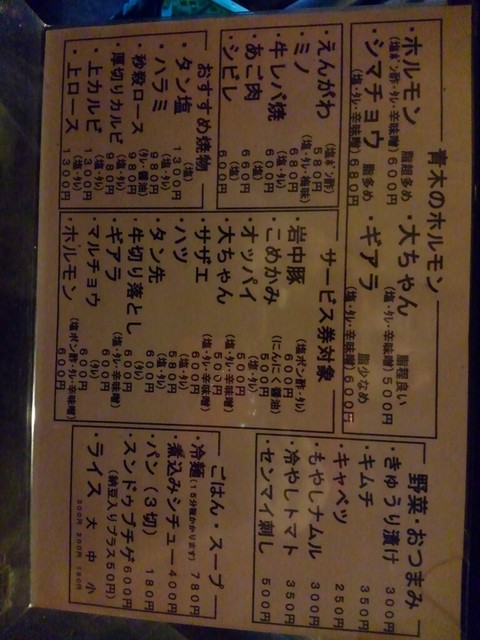 青木のホルモン
・ホルモン 脂超多め
(塩ポン酢・タレ・辛味噌) 600円
・大ちゃん 脂程良い
(塩・タレ・辛味噌) 500円
・シマチョウ 脂多め
(塩・タレ・辛味噌) 680円
・ギアラ 脂少なめ
(塩・タレ・辛味噌) 600円
・えんがわ (塩ポン酢) 580円
・ミノ (塩・タレ・辛味噌) 680円
・牛レバ焼 (塩・タレ) 680円
・あご肉 (塩・タレ) 600円
・シビレ (塩) 600円
おすすめ焼物
・タン塩 (塩) 1300円
・ハラミ (塩・タレ) 980円
・秒殺ロース (タレ・醤油) 980円
・厚切りカルビ (タレ) 980円
・上カルビ (塩・タレ) 1300円
・上ロース (塩・タレ) 1300円
サービス券対象
・岩中豚 (塩ポン酢・タレ) 600円
・こめかみ (にんにく醤油)
・オッパイ (塩・タレ)
・大ちゃん (塩・タレ・辛味噌) 500円
・サザエ (塩・タレ・辛味噌)
・ハツ (塩・タレ) 580円
・タン先 (塩・タレ) 600円
・牛切り落とし (タレ) 600円
・ギアラ (塩・タレ・辛味噌) 600円
・マルチョウ (塩・タレ・辛味噌) 600円
・ホルモン (塩ポン酢・タレ・辛味噌) 600円
野菜・おつまみ
・きゅうり漬け 300円
・キムチ 350円
・キャベツ 250円
・もやしナムル 300円
・冷やしトマト 350円
・センマイ刺し 500円
ごはん・スープ
・冷麺(15分程かかります) 780円
・煮込みシチュー 400円
・パン(3切) 180円
・スンドゥブチゲ 600円
(納豆入りプラス50円)
・ライス 大 中 小
300円 200円 150円